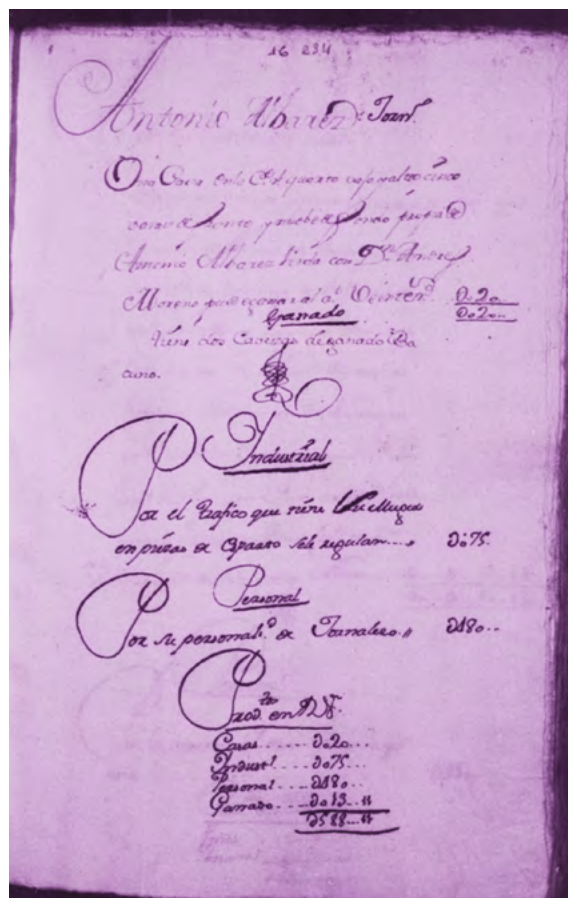 16 234
Antonio Albarez Jorn.ro
Una Casa en la C.e de quarto vajo y alto cinco
varas de frente y nuebe de fondo
Antonio Albarez linda con D.n Andres
Moreno gana al a.o Veinte r.s D.o20..
Ganado D.o20..
tiene dos Cavezas de ganado Ba
cuno.
Industrial
Por el trafico que tiene su Muger
en piezas de esparto se le regulan.... D.o75.
Personal
Por su personal de Jornalero. D180..
Prod.tos en R.s V.n
Casas....... D.o20...
Indust.l..... D.o75...
Personal.... D180..
Ganado.... D.o13..11
D288..11